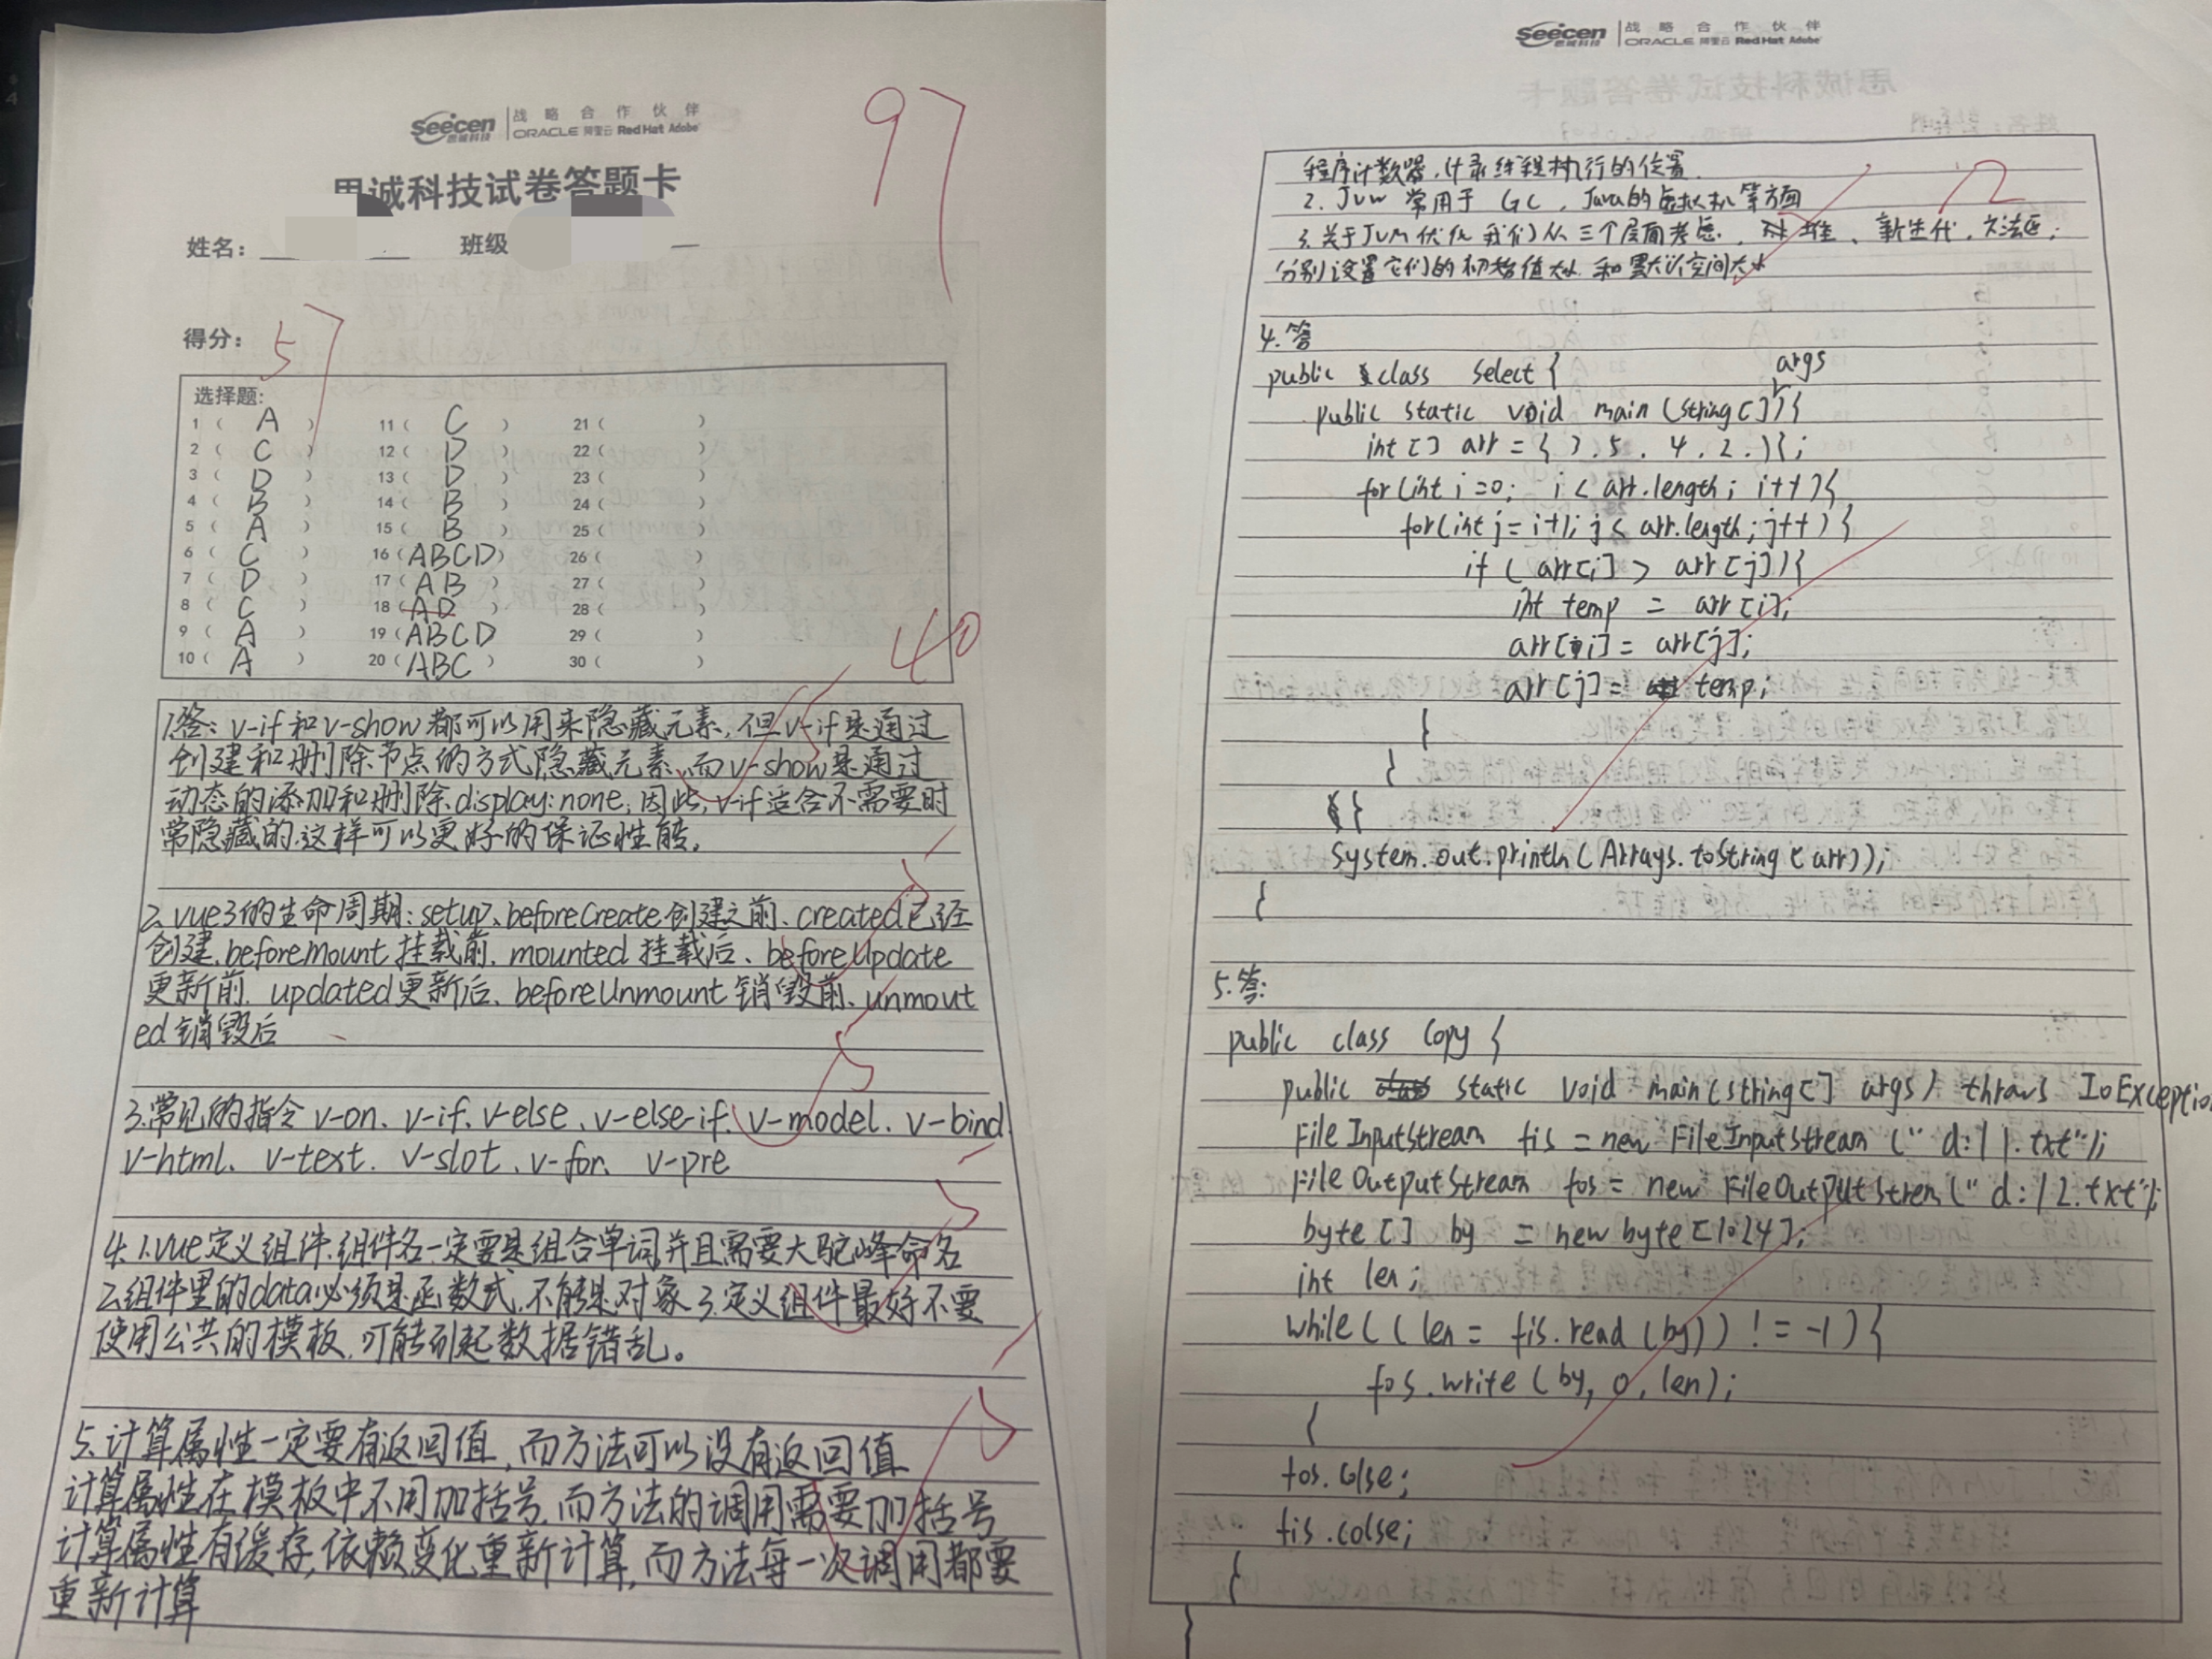 97
Seecen 思诚科技
战略合作伙伴
ORACLE 阿里云 RedHat Adobe
思诚科技试卷答题卡
姓名:
班级
得分:
57
选择题:
1 ( A ) 11 ( C ) 21 ( )
2 ( C ) 12 ( D ) 22 ( )
3 ( D ) 13 ( D ) 23 ( )
4 ( B ) 14 ( B ) 24 ( )
5 ( A ) 15 ( B ) 25 ( )
6 ( C ) 16 ( ABCD ) 26 ( )
7 ( D ) 17 ( AB ) 27 ( )
8 ( C ) 18 ( AD ) 28 ( )
9 ( A ) 19 ( ABCD ) 29 ( )
10 ( A ) 20 ( ABC ) 30 ( )
40
1答: v-if和v-show都可以用来隐藏元素,但v-if是通过
创建和删除节点的方式隐藏元素,而v-show是通过
动态的添加和删除display:none,因此,v-if适合不需要时
常隐藏的.这样可以更好的保证性能.
2.vue3的生命周期:setup、beforeCreate创建之前、created已经
创建、beforeMount挂载前、mounted挂载后、beforeUpdate
更新前、updated更新后、beforeUnmount销毁前、unmout
ed销毁后
3.常见的指令v-on、v-if、v-else、v-else-if、v-model、v-bind、
v-html、v-text、v-slot、v-for、v-pre
4.1.vue定义组件.组件名一定要是组合单词并且需要大驼峰命名
2.组件里的data必须是函数式,不能是对象3.定义组件最好不要
使用公共的模板,可能引起数据错乱。
5.计算属性一定要有返回值,而方法可以没有返回值
计算属性在模板中不用加括号,而方法的调用需要加括号
计算属性有缓存,依赖变化重新计算,而方法每一次调用都要
重新计算
Seecen 思诚科技
战略合作伙伴
ORACLE 阿里云 RedHat Adobe
程序计数器,计录线程执行的位置.
2. Jvm 常用于 GC, Java的虚拟机等方面
3.关于JVM优化我们从三个层面考虑,对堆、新生代,方法区;
分别设置它们的初始值大小和默认空间大小
4.答
public class select {
public static void main (string[] args){
int [] arr = { 7.5.4.2.};
for(int i=0; i< arr.length; i++){
for(int j=i+1; j< arr.length; j++){
if ( arr[i] > arr[j]){
int temp = arr[i];
arr[i] = arr[j];
arr[j] = temp;
}
}
}
system.out.println(Arrays.tostring(arr));
}
5.答:
public class Copy {
public static void main(string[] args) throws IoExceptio
File Inputstream fis = new FileInputstream (" d:|1.txt");
File OutputStream fos = new FileOutputStrem(" d:|2.txt");
byte [] by = new byte[1024];
int len;
while((len = fis.read (by)) != -1){
fos.write (by, 0, len);
}
fos.colse;
fis.colse;
}
}